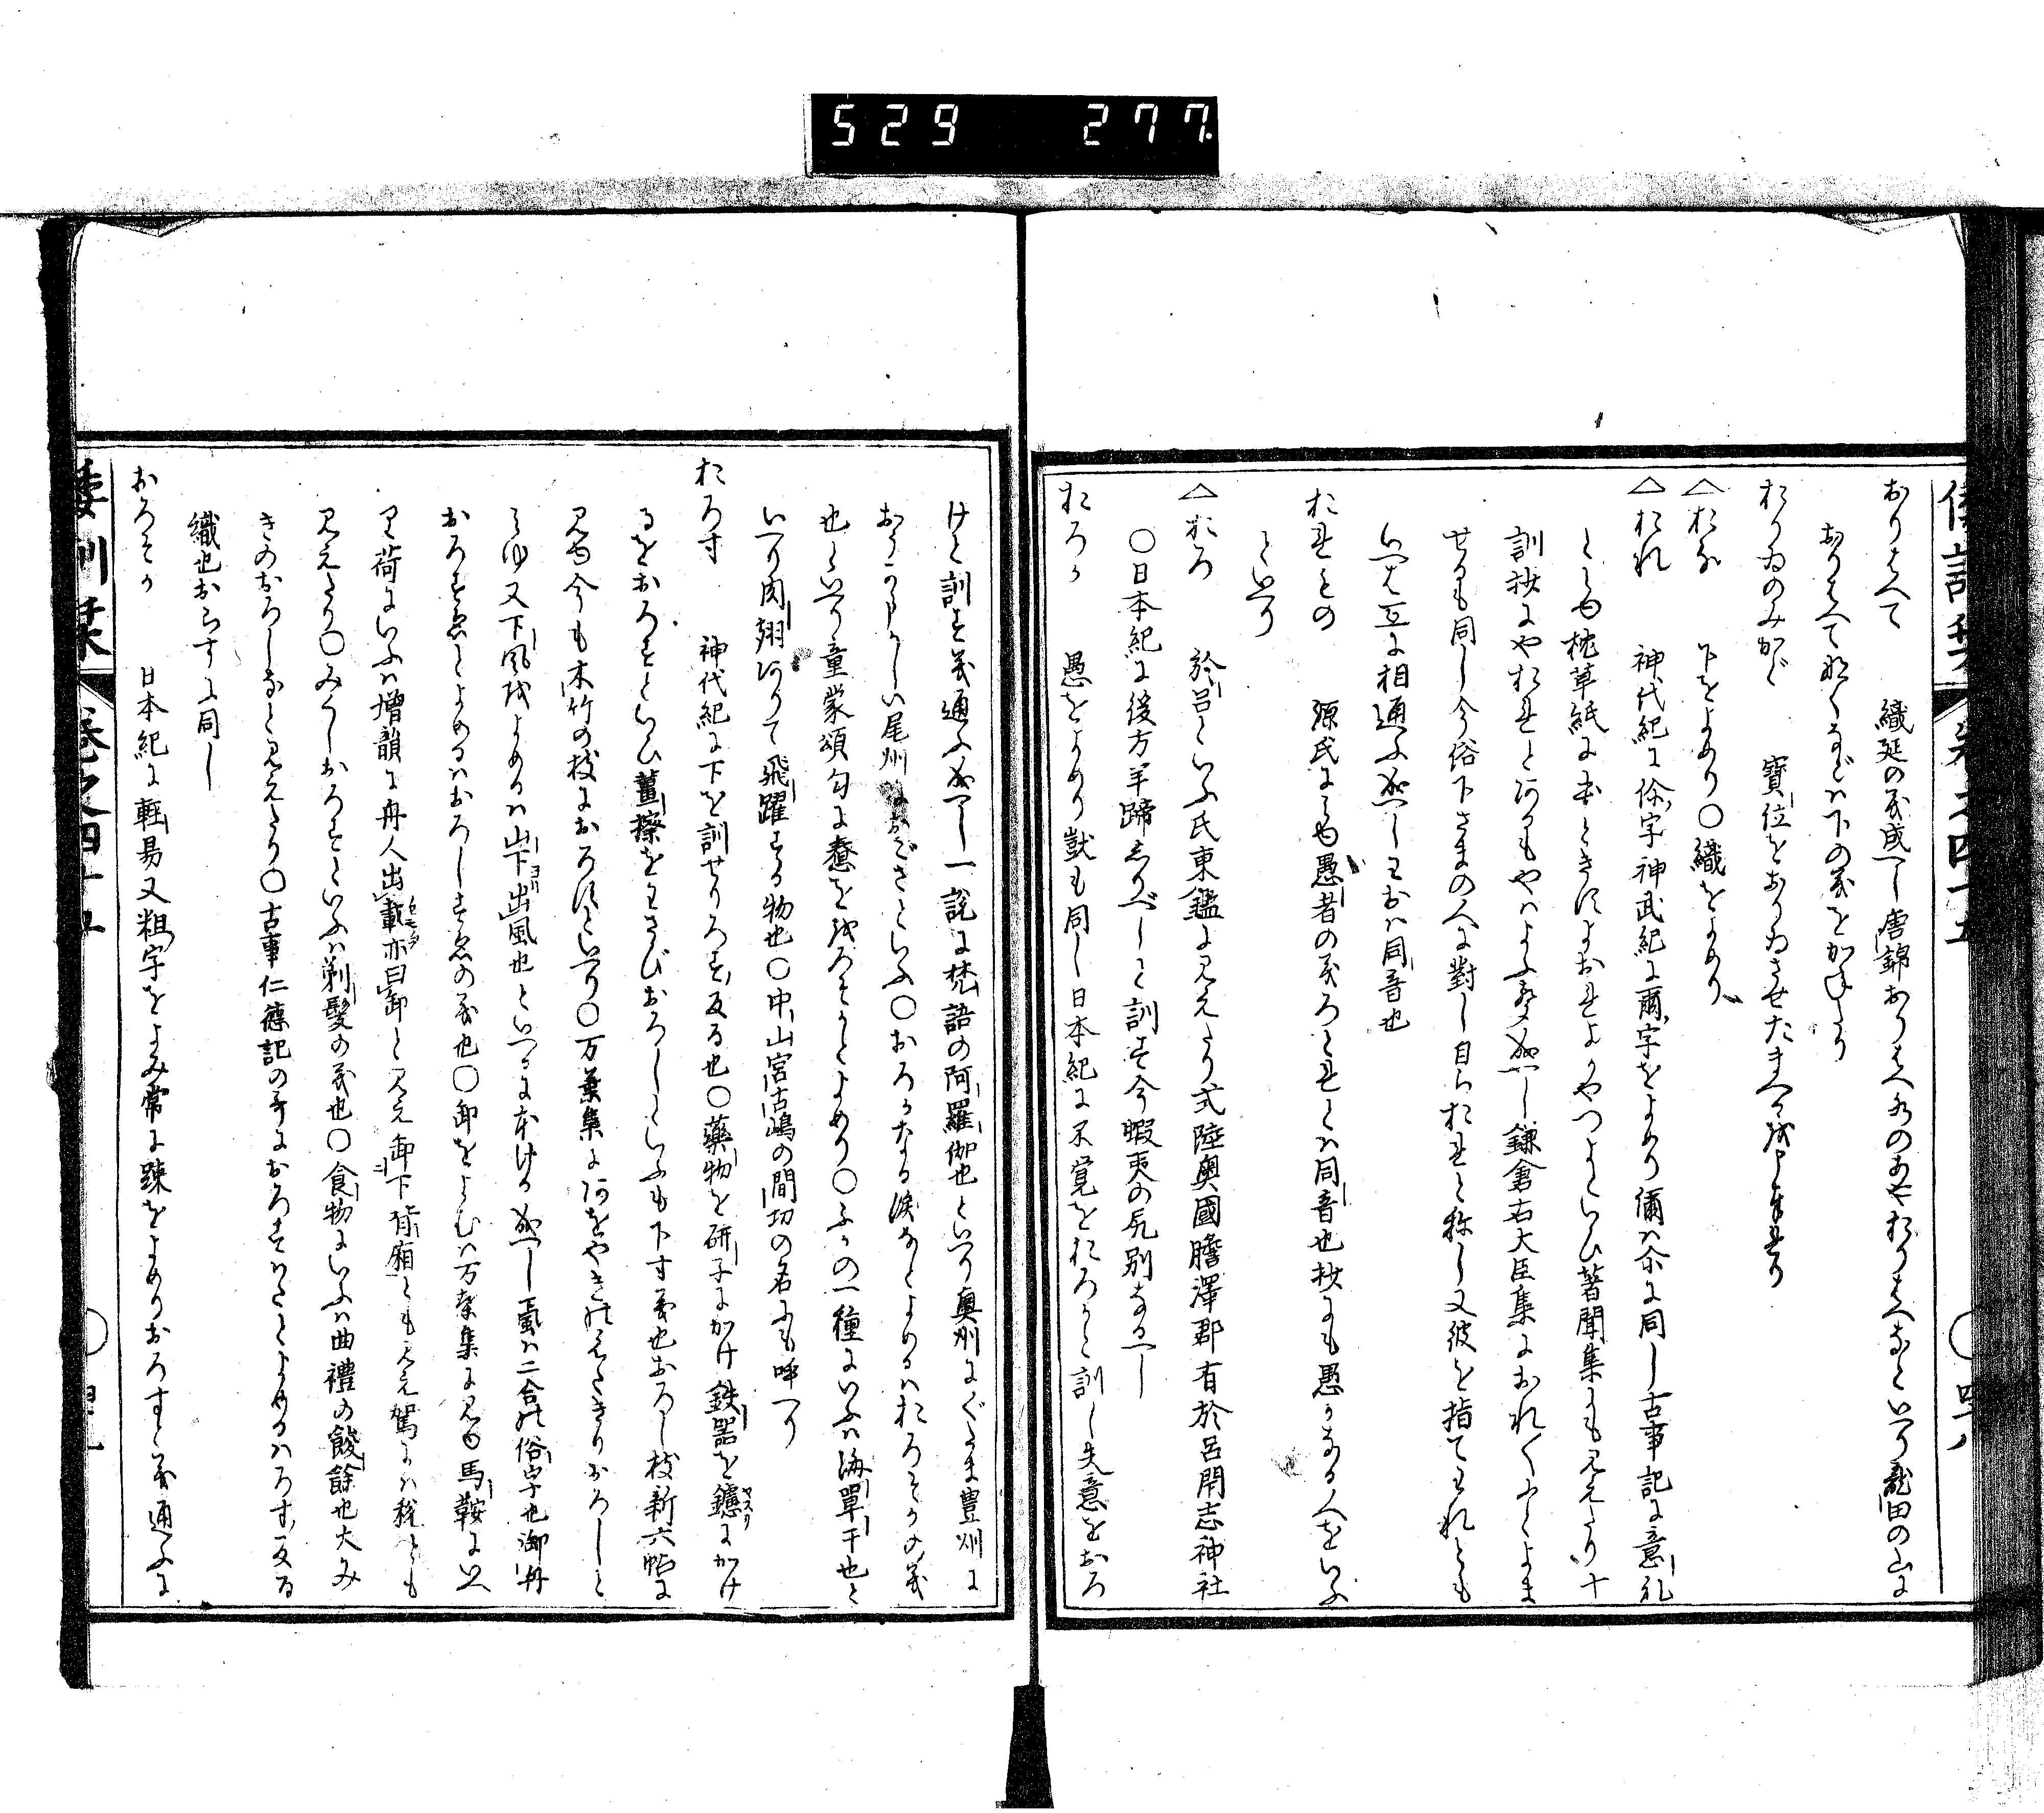 529 277
倭訓栞 巻之四十五 ○四十八
おりはへて 織延の義成へし唐錦おりはへ水のあやおりはへなといへり龍田の山に
おりはへて啼くなどハ下の義をかねしか
おりゐのみかど 寶位をおりゐさせたまへる
△おる 下をよめり○織をよめり
△おれ 神代紀に你字神武紀に爾字をよめり儞ハ你に同し古事記に意礼
とみゆ枕草紙にほとゝきすよおれよかやつよといひ著聞集にも見えたり十
訓抄にやおれとあるもやハよふ聲成へし鎌倉右大臣集におれくふとよま
せるも同し今俗下さまの人に對し自らおれと称し又彼を指てわれとも
いへハ互に相通ふ成へしわおハ同音也
おれもの 源氏にみゆ愚者の義ろとれとハ同音也抄にも愚かなる人をいふ
といへり
△おろ 於呂といふ氏東鑑に見えたり式陸奥國膽澤郡有於呂閇志神社
○日本紀に後方羊蹄しりべしと訓す今暇夷の尻別なるへし
おろか 愚をよめり獃も同し日本紀に不覚をおろかと訓し失意をおろ
けと訓す義通ふ成へし一説に梵語の阿羅伽也といへり奥州にぐだま豊州に
おろかしい尾州におぞさといふ○おろかなる涙なとよめるハおろそかの義
也といへり童蒙頌句に憃をおろそかとよめり○ふかの一種にいふハ海單干也と
いへり肉翅ありて飛躍する物也○中山宮古嶋の間切の名にも呼へり
おろす 神代紀に下を訓せりろす反る也○藥物を研子にかけ鉄器を鑢にかけ
るをおろすといひ薑擦をわさびおろしといふも下す義也おろし枝新六帖に
見ゆ今も木竹の枝におろすといへり○万葉集にあをやきのえたきりおろしと
みゆ又下風をよめるハ山下出風也といへるに本ける成へし颪ハ二合の俗字也御舟
おろすゑとよめるハおろしすゑの義也○卸をよむハ万葉集に見ゆ馬鞍にいへ
り荷にいふハ増韻に舟人出載亦曰卸と見え卸下猪廂とも見え駕にハ税とも
見えたり○みくしおろすといふハ剃髪の義也○食物にいふハ曲禮の餕餘也大み
きのおろしなと見えたり○古事仁徳記の哥におろすはたとよめるハろす反る
織也おらすに同し
おろそか 日本紀に輕易又粗字をよみ常に踈をよめりおろすと義通ふに
倭訓栞 巻之四十五